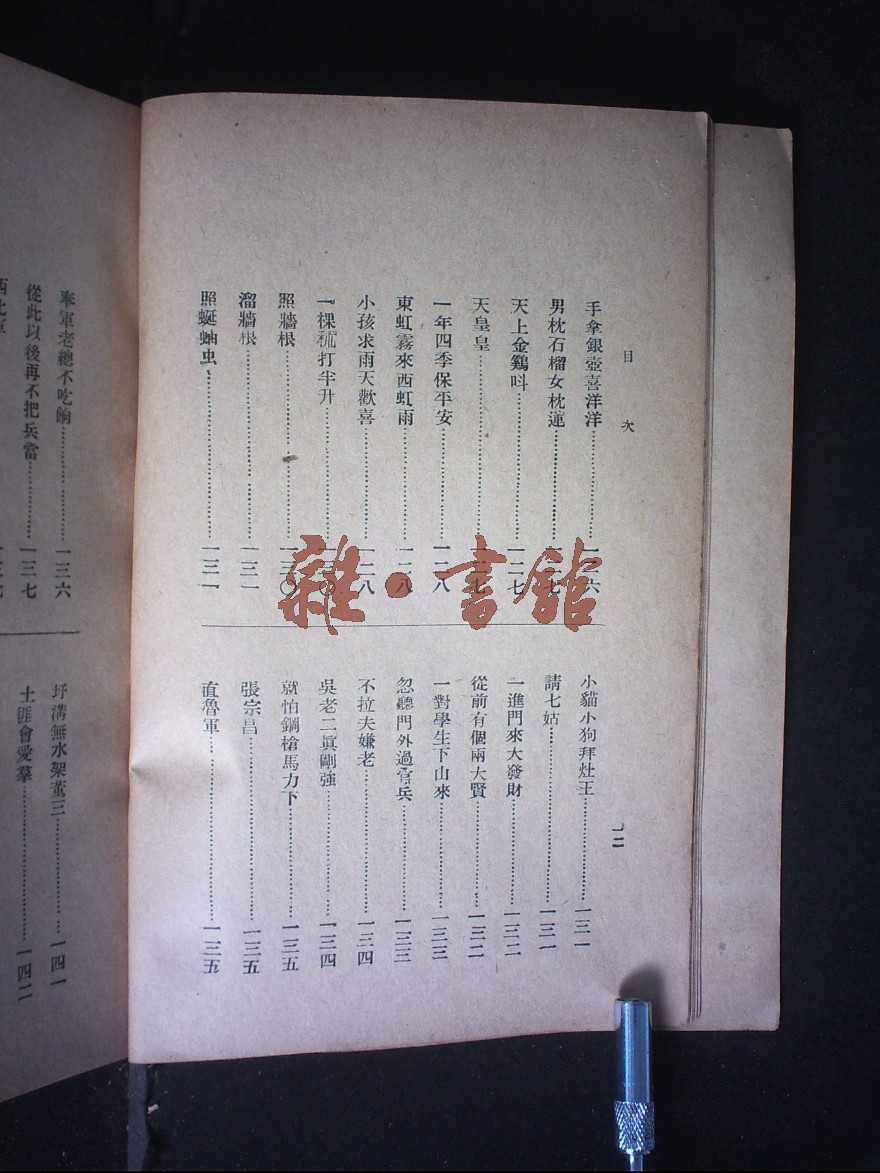 目次
手拿銀壺喜洋洋……一二六
男枕石榴女枕蓮……一二七
天上金鷄叫……一二七
天皇皇……一二七
一年四季保平安……一二八
東虹霧來西虹雨……一二八
小孩求雨天歡喜……一二八
一棵 打半升……一三〇
照牆根……一三〇
溜牆根……一三一
照蜒蚰虫……一三一
小貓小狗拜灶王……一三一
請七姑……一三一
一進門來大發財……一三二
從前有個兩大賢……一三二
一對學生下山來……一三三
忽聽門外過官兵……一三三
不拉夫嫌老……一三四
吳老二眞剛強……一三四
就怕鋼槍馬力下……一三五
張宗昌……一三五
直魯軍……一三五
一二
奉軍老總不吃餉……一三六
從此以後再不把兵當……一三七
西北軍
圩溝無水架董三……一四一
土匪會愛羣……一四二
雜·書館